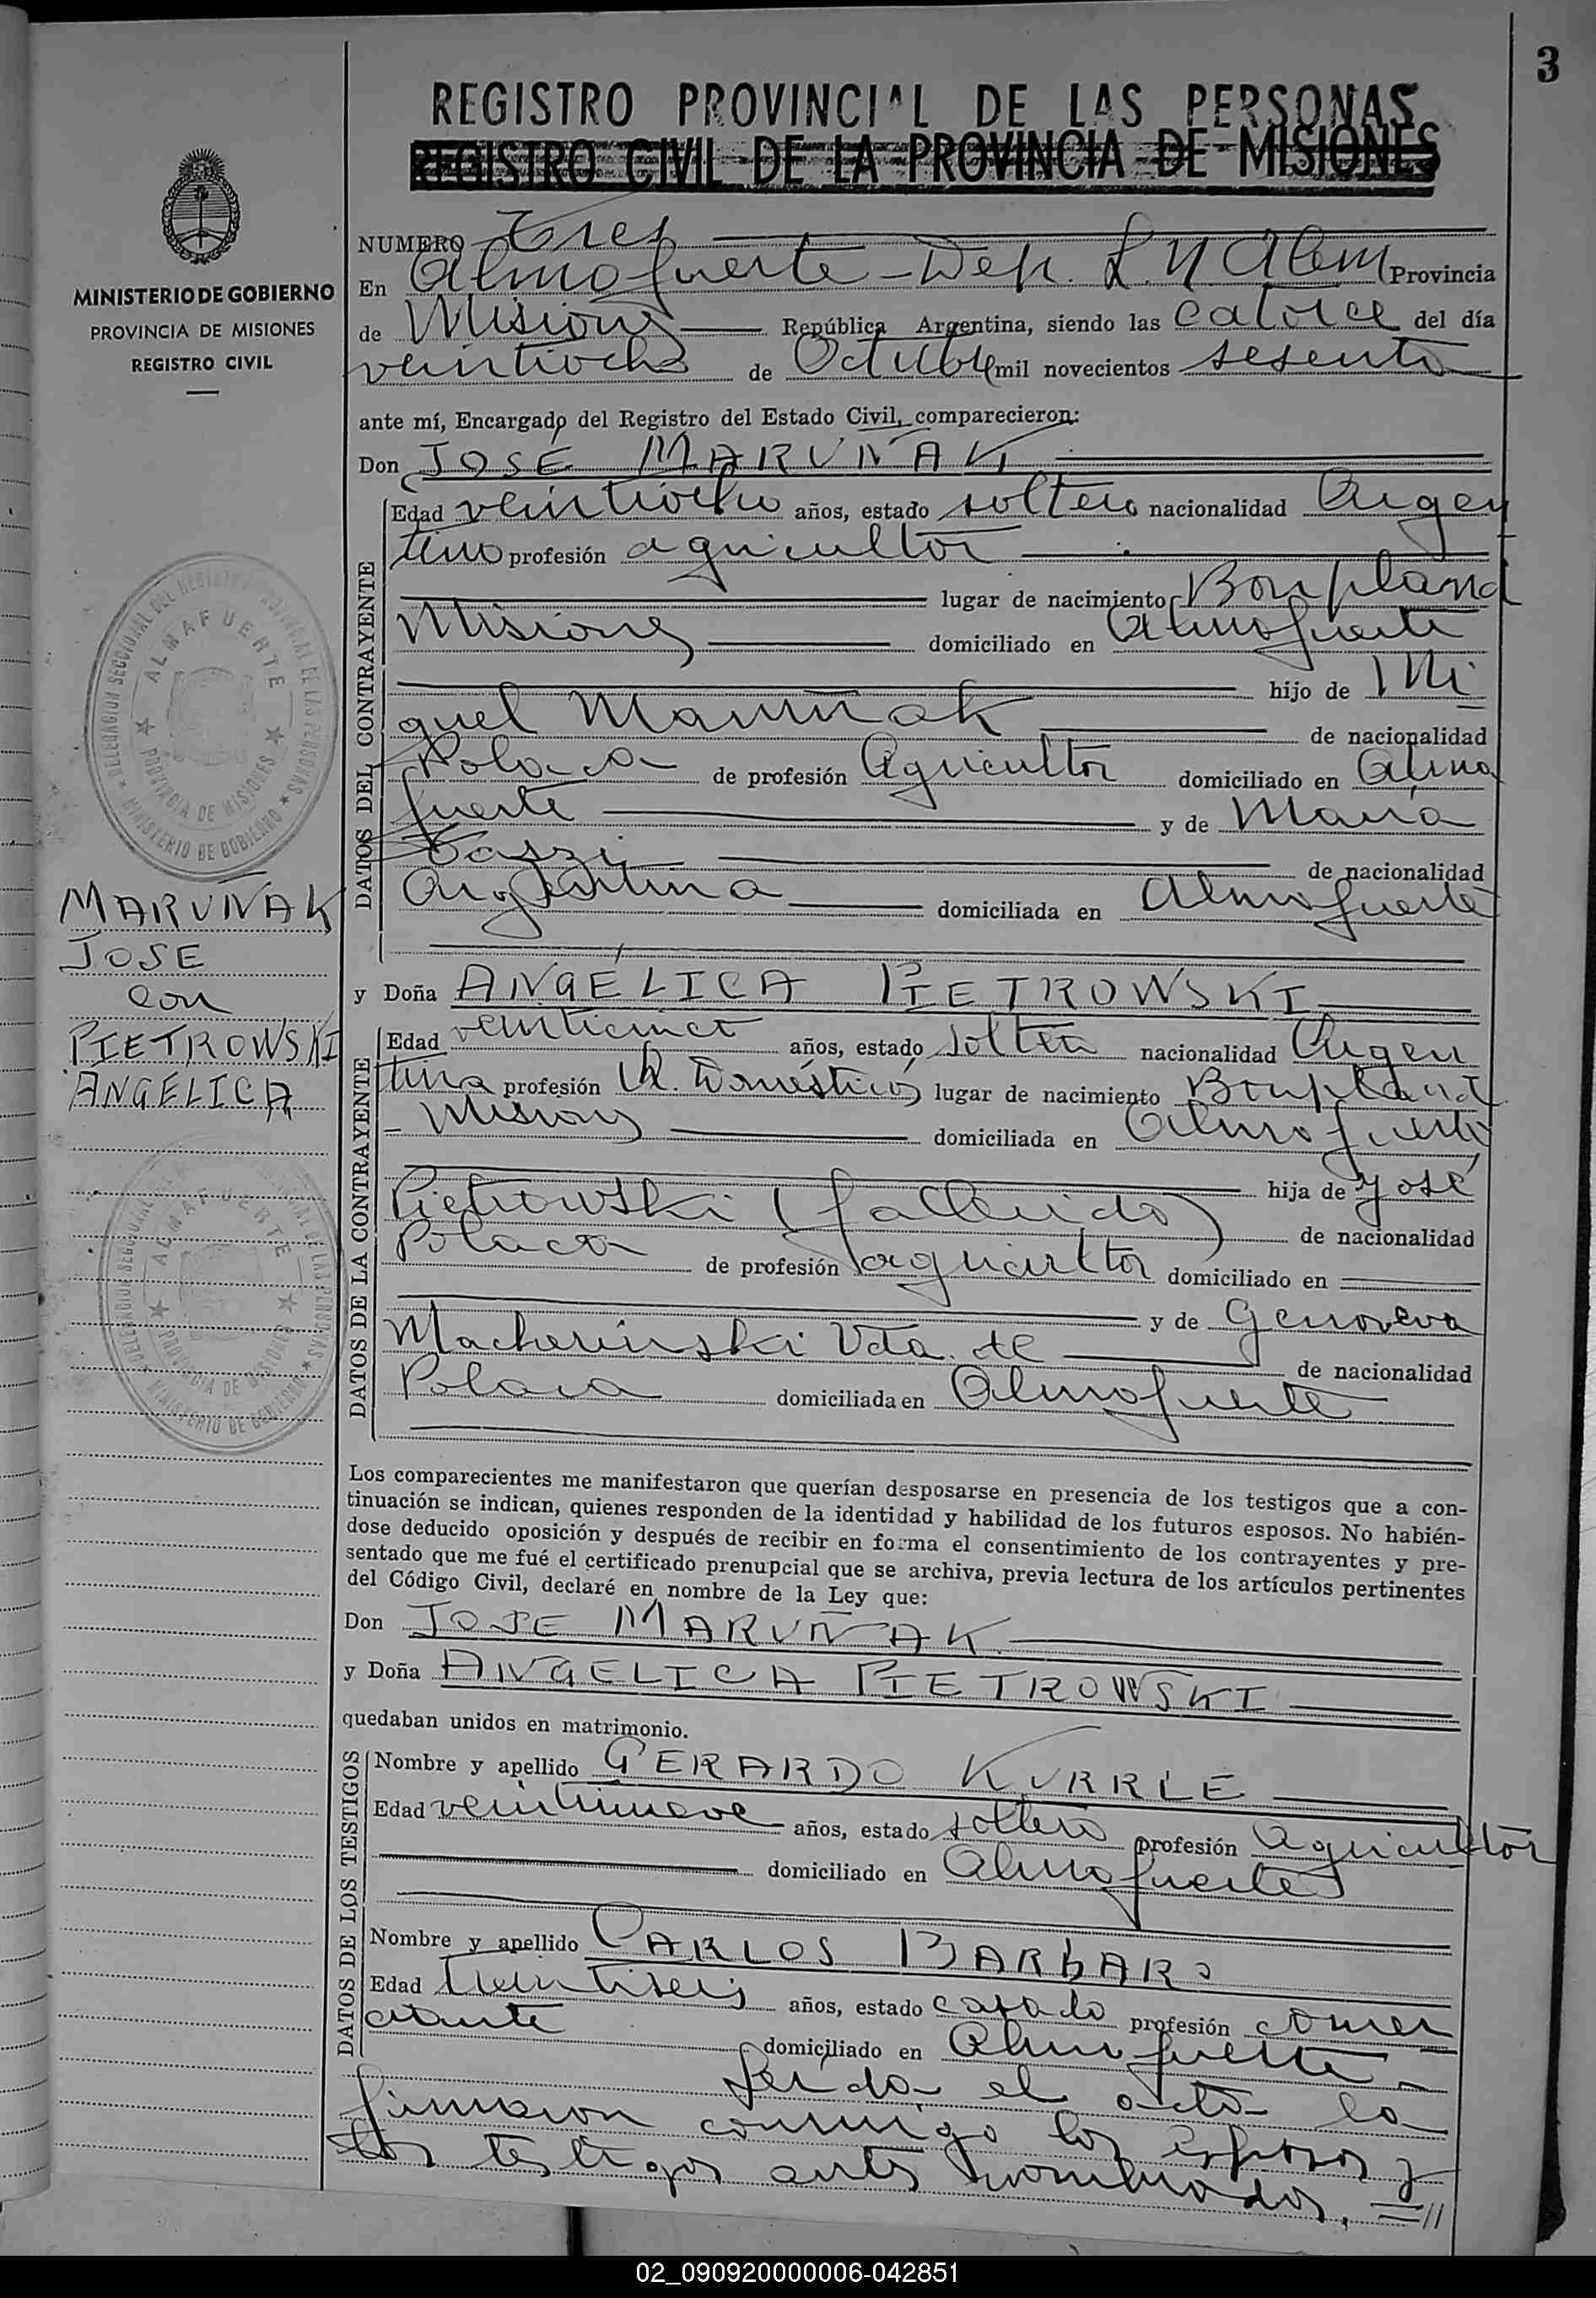 3
REGISTRO PROVINCIAL DE LAS PERSONAS
REGISTRO CIVIL DE LA PROVINCIA DE MISIONES
MINISTERIO DE GOBIERNO
PROVINCIA DE MISIONES
REGISTRO CIVIL
NUMERO Tres
En Almafuerte - Dep. L. N Alem Provincia
de Misiones República Argentina, siendo las catorce del día
veintiocho de Octubre mil novecientos sesenta
ante mí, Encargado del Registro del Estado Civil, comparecieron:
Don JOSÉ MARUÑAK
DATOS DEL CONTRAYENTE
Edad veintiocho años, estado soltero nacionalidad Argen
tino profesión agricultor
lugar de nacimiento Bonpland
Misiones domiciliado en Almafuerte
hijo de Mi
guel Maruñak de nacionalidad
Polaca de profesión Agricultor domiciliado en Alma
fuerte y de María
de nacionalidad
Argentina domiciliada en Almafuerte
MARUÑAK
JOSE
con
PIETROWSKI
ANGÉLICA
y Doña ANGÉLICA PIETROWSKI
DATOS DE LA CONTRAYENTE
Edad veinticinco años, estado soltera nacionalidad Argen
tina profesión Q. Domésticos lugar de nacimiento Bonpland
- Misiones domiciliada en Almafuerte
hija de José
Pietrowski (fallecido) de nacionalidad
Polaca de profesión agricultor domiciliado en
y de Genoveva
Macherinski Vda. de de nacionalidad
Polaca domiciliada en Almafuerte
Los comparecientes me manifestaron que querían desposarse en presencia de los testigos que a con-
tinuación se indican, quienes responden de la identidad y habilidad de los futuros esposos. No habién-
dose deducido oposición y después de recibir en forma el consentimiento de los contrayentes y pre-
sentado que me fué el certificado prenupcial que se archiva, previa lectura de los artículos pertinentes
del Código Civil, declaré en nombre de la Ley que:
Don JOSE MARUÑAK
y Doña ANGÉLICA PIETROWSKI
quedaban unidos en matrimonio.
DATOS DE LOS TESTIGOS
Nombre y apellido GERARDO KURRLE
Edad veintinueve años, estado soltero profesión Agricultor
domiciliado en Almafuerte
Nombre y apellido CARLOS BARBARO
Edad treintiseis años, estado casado profesión comer
ciante domiciliado en Almafuerte -
Leída el acta la
firmaron conmigo los esposos y
los testigos antes nombrados. = //
02_090920000006-042851